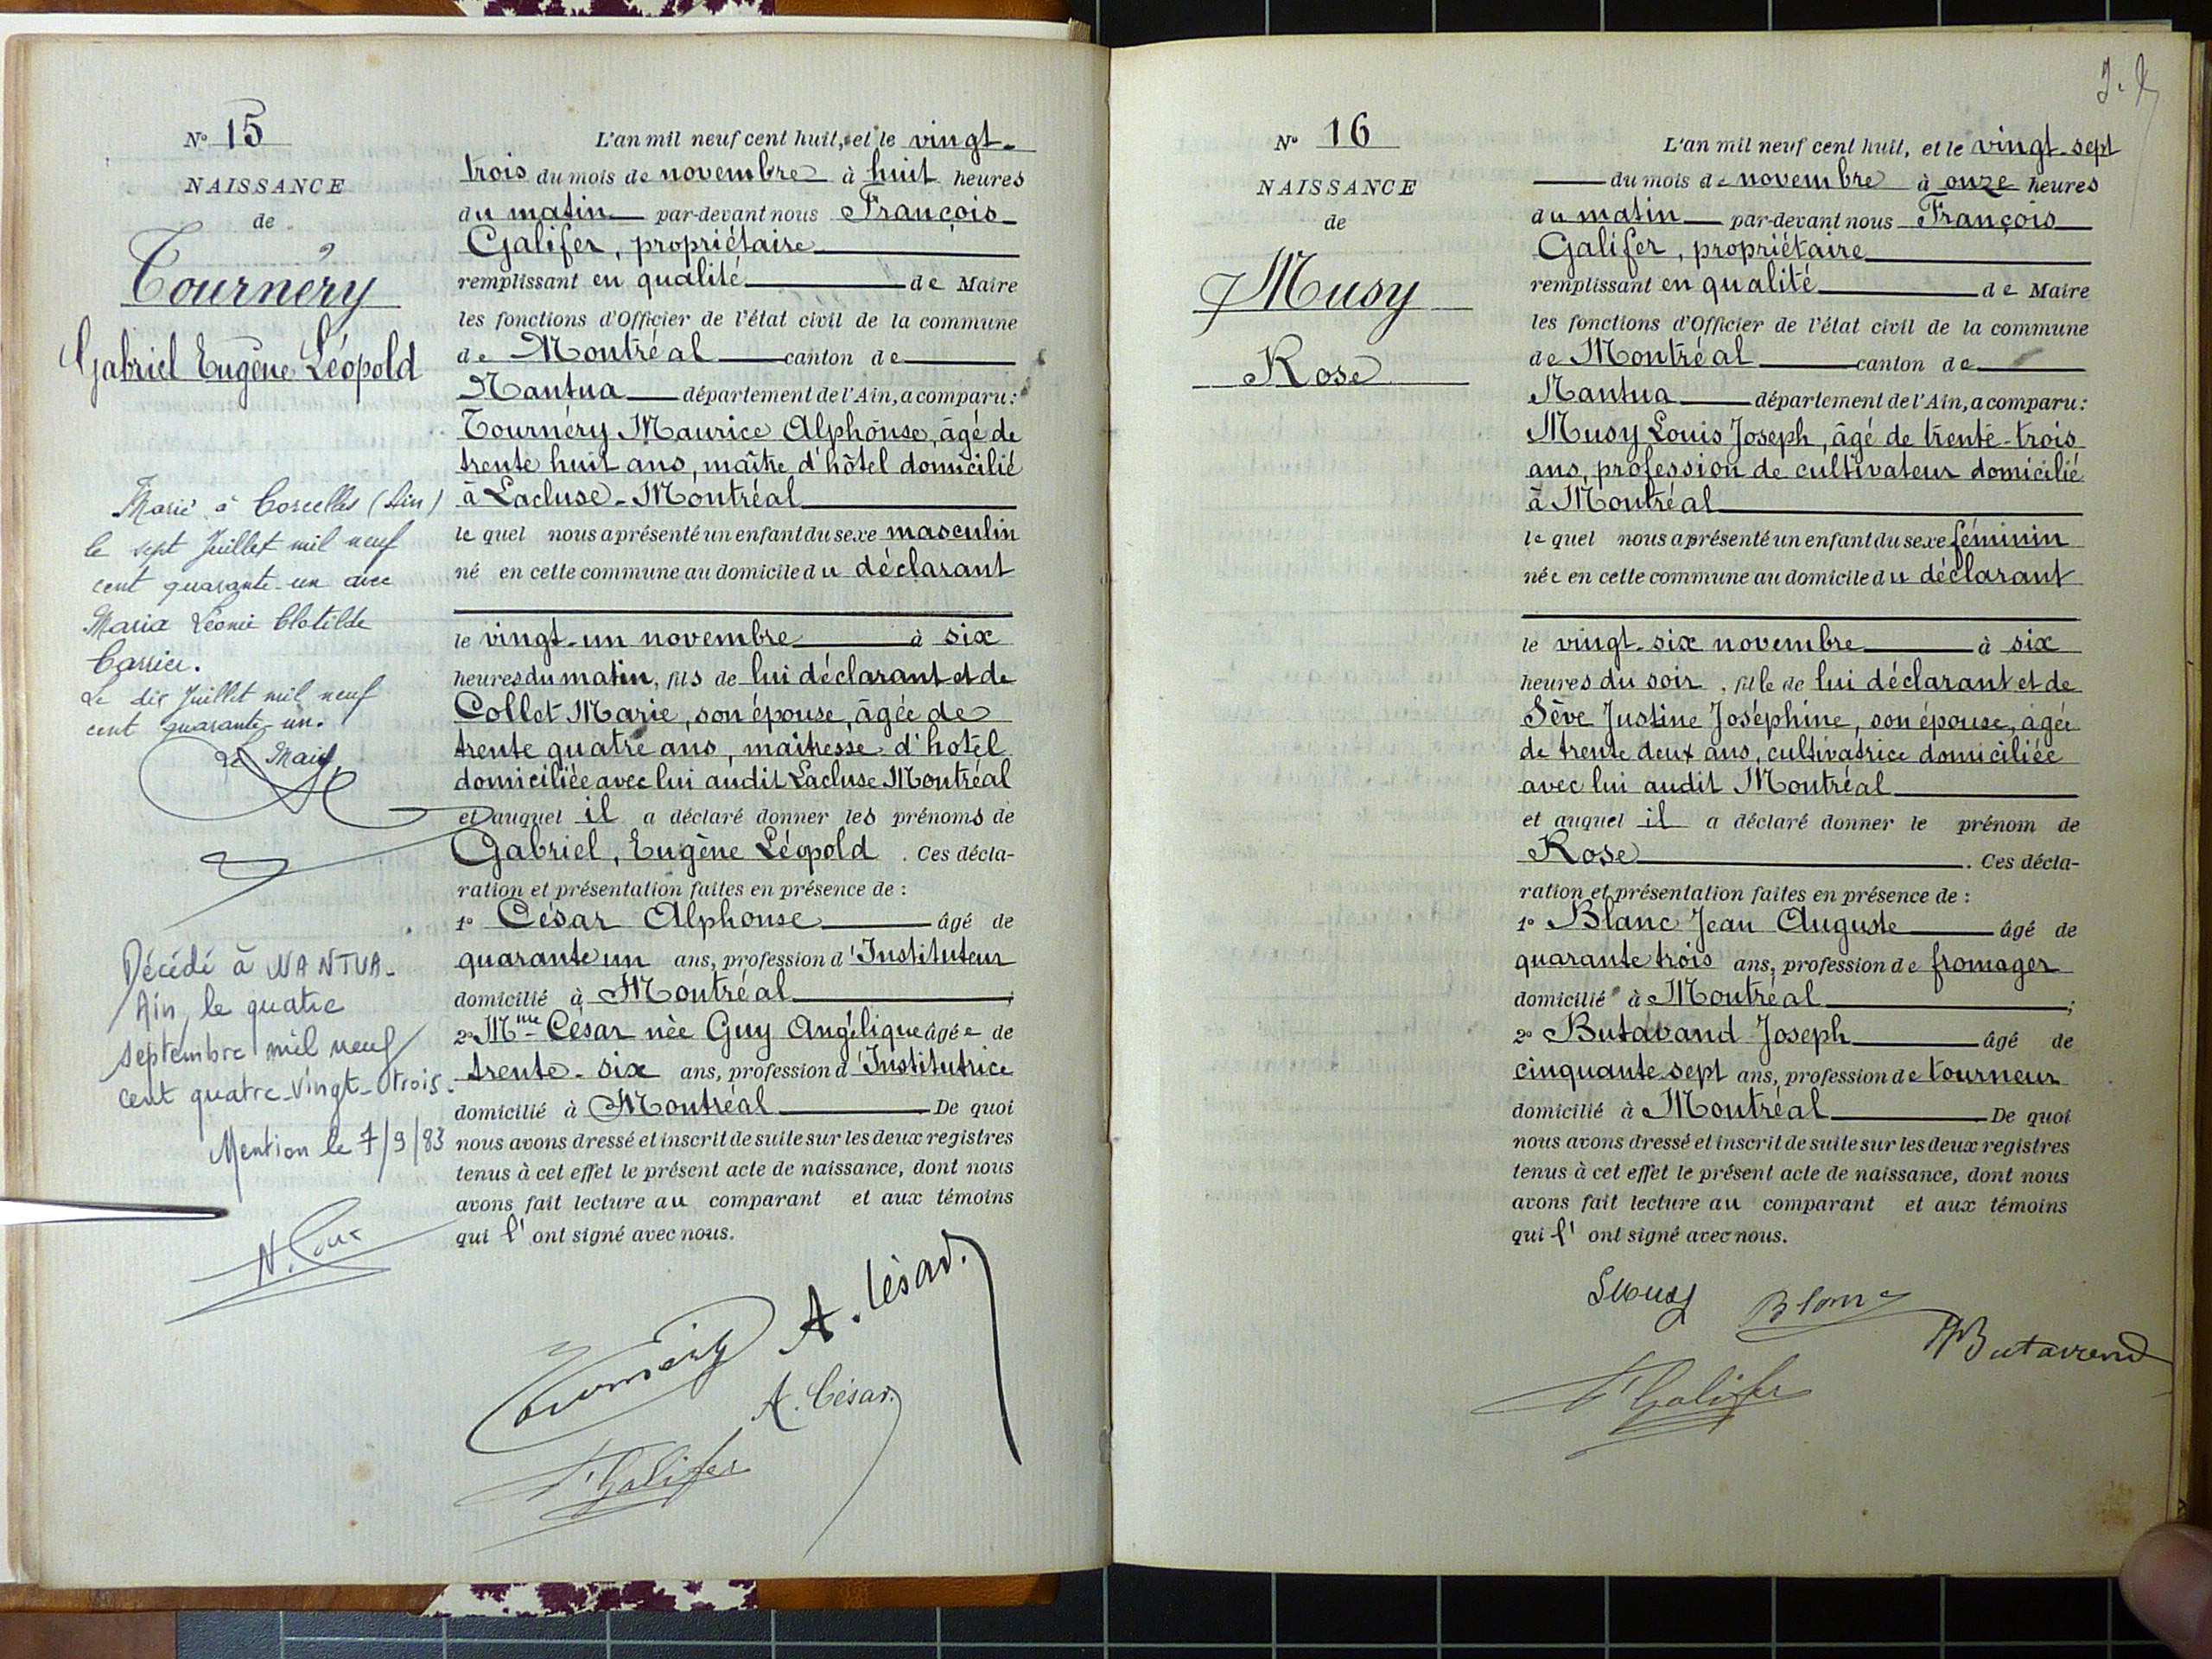 N° 15
NAISSANCE
de
Tournéry
Gabriel Eugène Léopold
Marié à Corcelles (Ain)
le sept Juillet mil neuf
cent quarante-un avec
Maria Léonie Clotilde
Carrier.
Le dix Juillet mil neuf
cent quarante-un.
Le Maire
Décédé à NANTUA-
Ain, le quatre
septembre mil neuf
cent quatre-vingt-trois.
Mention le 7/9/83
L'an mil neuf cent huit, et le vingt-
trois du mois de novembre à huit heures
du matin par-devant nous François
Galifer, propriétaire
remplissant en qualité de Maire
les fonctions d'Officier de l'état civil de la commune
de Montréal canton de
Nantua département de l'Ain, a comparu:
Tournéry Maurice Alphonse, âgé de
trente huit ans, maître d'hôtel domicilié
à Lacluse-Montréal
le quel nous a présenté un enfant du sexe masculin
né en cette commune au domicile du déclarant
le vingt-un novembre à six
heures du matin, fils de lui déclarant et de
Collet Marie, son épouse, âgée de
trente quatre ans, maîtresse d'hotel
domiciliée avec lui audit Lacluse Montréal
et auquel il a déclaré donner les prénoms de
Gabriel, Eugène Léopold. Ces décla-
ration et présentation faites en présence de :
1° César Alphonse âgé de
quarante un ans, profession d'Instituteur
domicilié à Montréal ;
2° Mme César née Guy Angélique âgée de
trente-six ans, profession d'Institutrice
domicilié à Montréal De quoi
nous avons dressé et inscrit de suite sur les deux registres
tenus à cet effet le présent acte de naissance, dont nous
avons fait lecture au comparant et aux témoins
qui l'ont signé avec nous.
Tournéry A. César.
A. César
F Galifer
N° 16
NAISSANCE
de
Musy
Rose
L'an mil neuf cent huit, et le vingt-sept
du mois de novembre à onze heures
du matin par-devant nous François
Galifer, propriétaire
remplissant en qualité de Maire
les fonctions d'Officier de l'état civil de la commune
de Montréal canton de
Nantua département de l'Ain, a comparu:
Musy Louis Joseph, âgé de trente-trois
ans, profession de cultivateur domicilié
à Montréal
le quel nous a présenté un enfant du sexe féminin
née en cette commune au domicile du déclarant
le vingt-six novembre à six
heures du soir, fille de lui déclarant et de
Sève Justine Joséphine, son épouse, âgée
de trente deux ans, cultivatrice domiciliée
avec lui audit Montréal
et auquel il a déclaré donner le prénom de
Rose. Ces décla-
ration et présentation faites en présence de :
1° Blanc Jean Auguste âgé de
quarante trois ans, profession de fromager
domicilié à Montréal ;
2° Butavand Joseph âgé de
cinquante sept ans, profession de tourneur
domicilié à Montréal De quoi
nous avons dressé et inscrit de suite sur les deux registres
tenus à cet effet le présent acte de naissance, dont nous
avons fait lecture au comparant et aux témoins
qui l'ont signé avec nous.
LMusy Blanc
Butavand
F Galifer